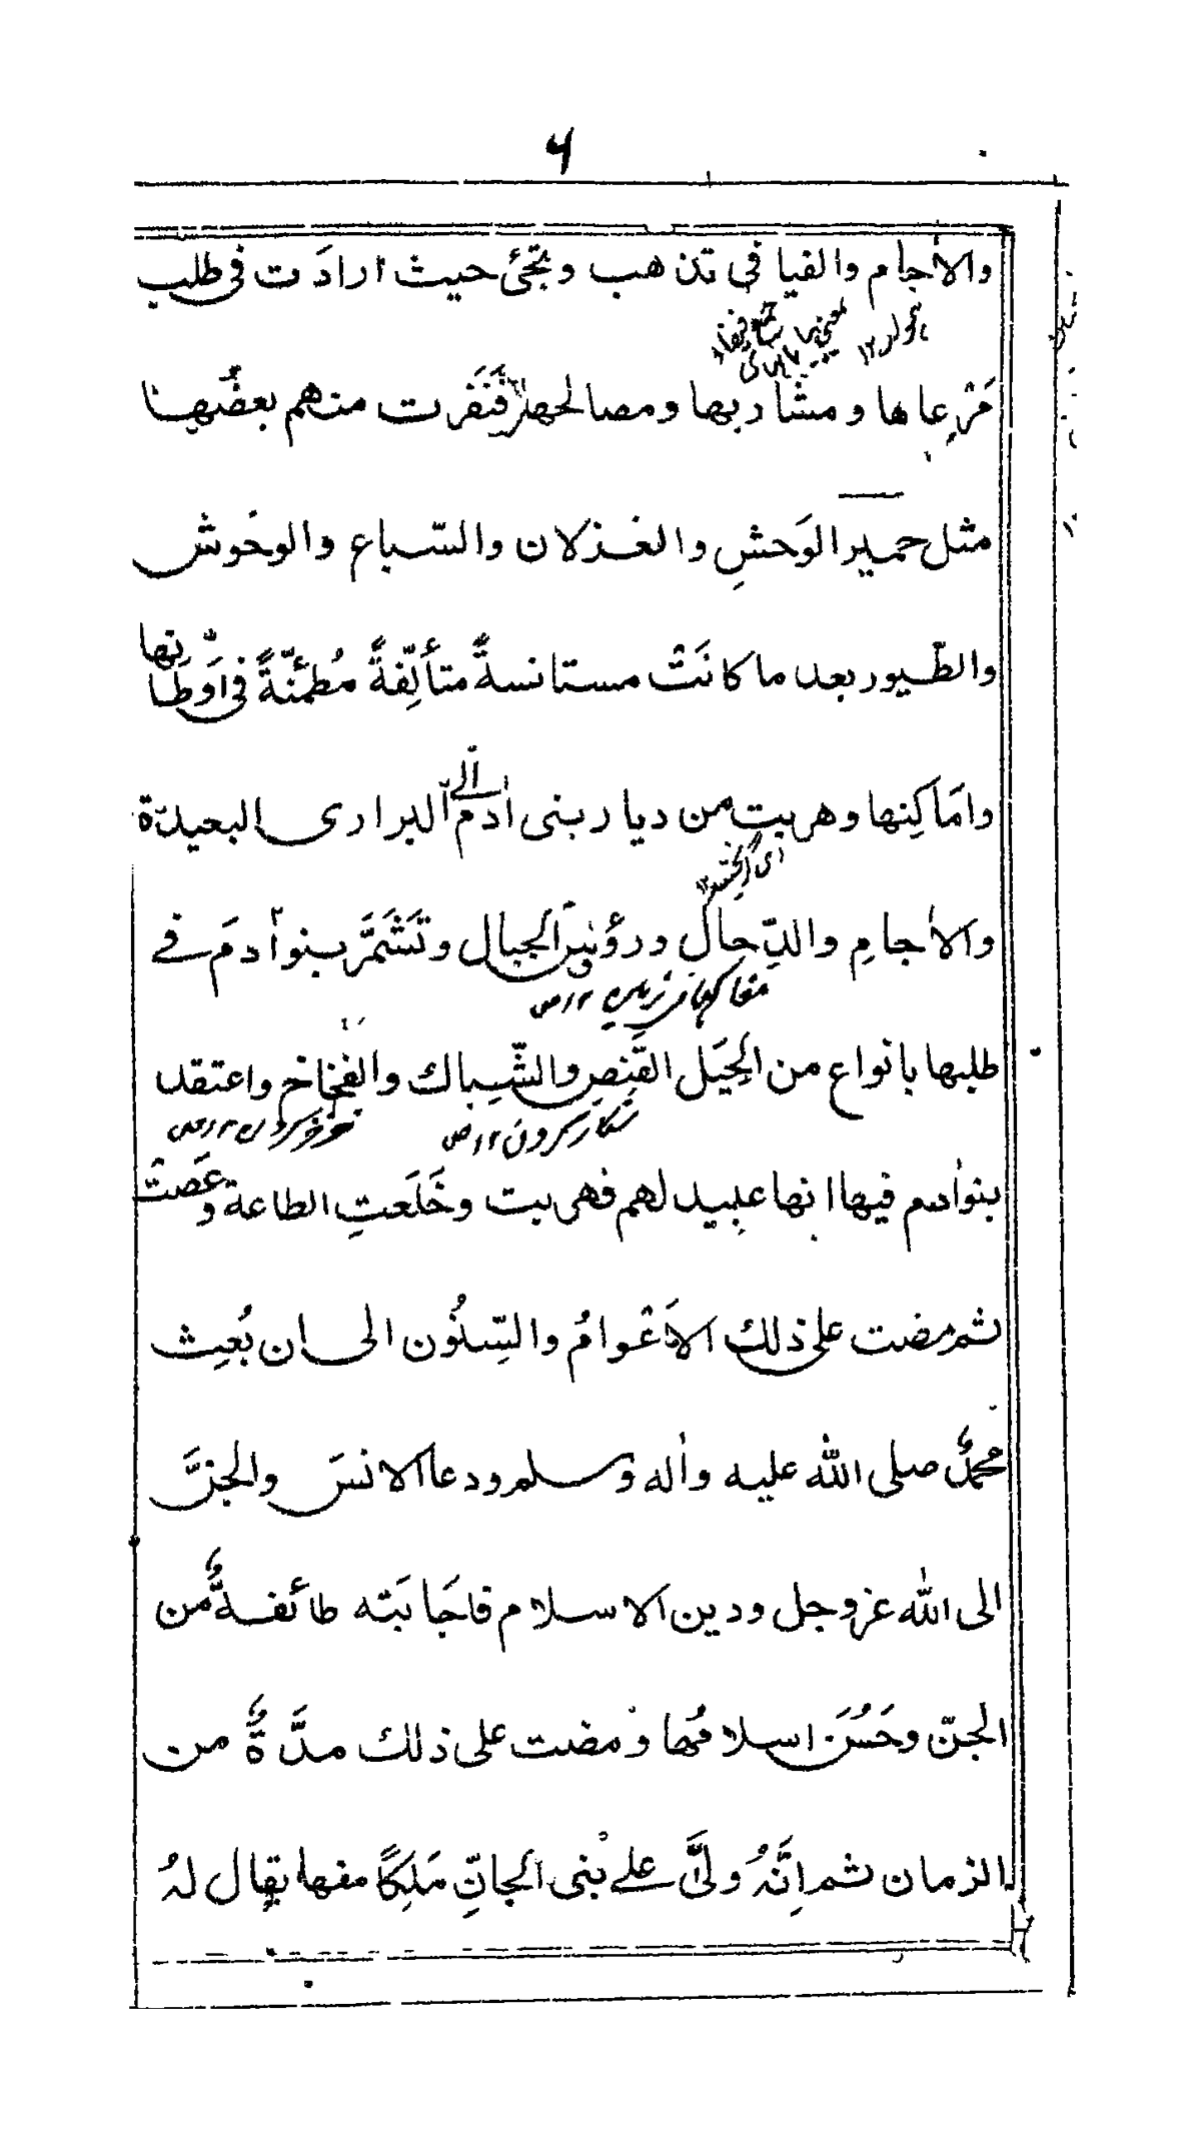 ۶
والاٰجام والفيافى تذهب وتجئ حيث ارادَت فى طلب
مَرْعاها ومشاربها ومصالحها فَنَفَرت منهم بعضُها
مثل حمير الوَحشِ والغزلان والسّباع والوحُوش
والطّيور بعد ما كانَتْ مستانسةً متألِّفةً مُطمئِنّةً فى اَوطَانها
وامَاكِنها وهربت من ديار بنى اٰدمَ الى البرارى البعيدة
والاٰجامِ والدِّحال ورؤسِ الجبال وتَشَمَّرَ بنو اٰدمَ فے
طلبها بانواع من الحِيَل القَنصِ والشِّباك والفخاخ واعتقد
بنو اٰدم فيها انها عبيد لهم فهربت وخَلَعتِ الطاعة وعَصَتْ
ثم مضت على ذلك الاَعْوامُ والسِّنُون الى ان بُعِث
محمدٌ صلى الله عليه واٰله وسلم ودعا الانسَ والجنَّ
الى الله عز وجل ودين الاسلام فاجَابَته طائفةٌ من
الجنّ وحَسُنَ اسلامُها ومضت على ذلك مدَّةٌ من
الزمان ثم اِنَّهُ ولىَّ علے بنى الجانِّ مَلِكًا منها يقال لهُ